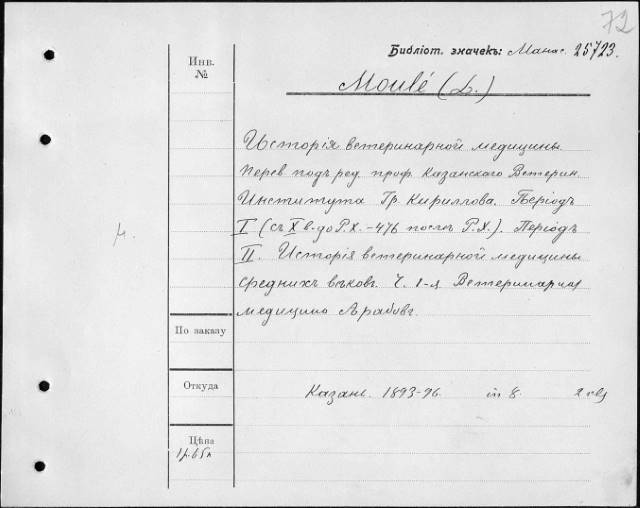 72
Библіот. значекъ: Манас. 25723.
Инв.
№
Moulé (L.)
Исторія ветеринарной медицины.
Перев подъ ред. проф. Казанскаго Ветерин.
Института Гр. Кириллова. Періодъ
I (съ X в. до Р.Х. – 476 послѣ Р.Х.). Періодъ
II. Исторія ветеринарной медицины
среднихъ вѣковъ. Ч. 1-я Ветеринарная
медицина Арабовъ.
По заказу
Откуда
Казань. 1893-96. in 8. 2
Цѣна
1 р. 65 к